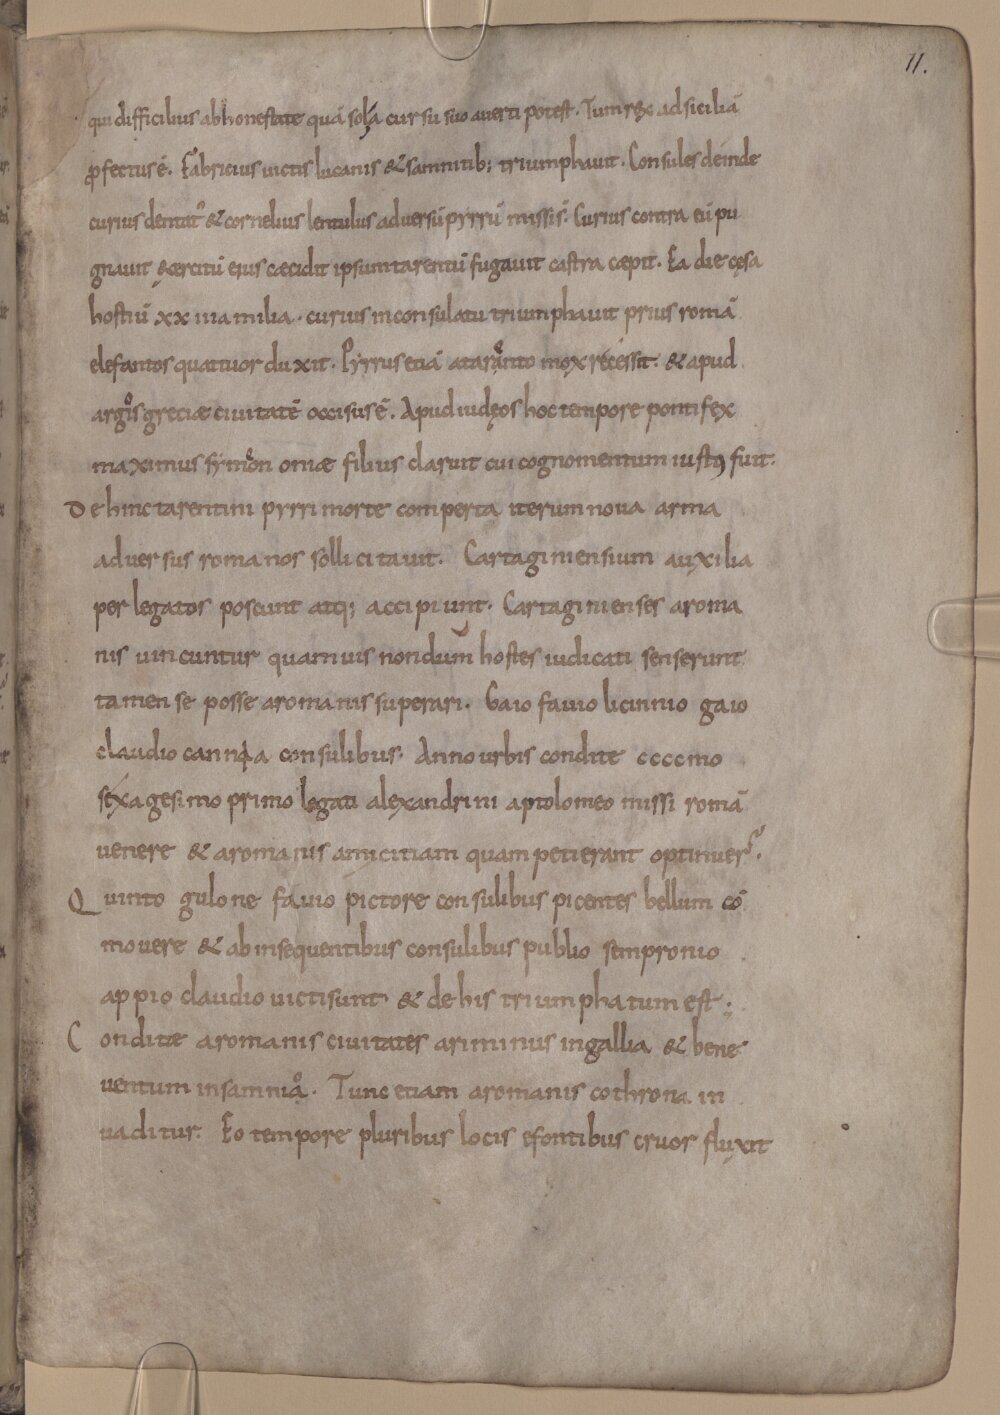 11.
qui difficilius abhonestate quā sola cursu suo auerti potest. Tum rex adsiciliā
ꝓfectusē. Fabricius uictis lucanis & samnitib; triumphauit. Consules deinde
curius dentat᾿ & cornelius lentulus aduersū pyrrū missi s̄. Curius contra eū pu
gnauit exercitū eius cæcidit ipsum tarentū fugauit castra cæpit. Ea die cęsa
hostiū xx iii a milia. curius inconsulatu triumphauit prius romā
elefantos quattuor duxit. Pyrrus etiā atarento mox recessit. & apud
argos greciæ ciuitatē occisusē. Apud iudęos hoc tempore pontifex
maximus symon oniæ filius claruit cui cognomentum iustꝰ fuit.
Dehinc tarentini pyrri morte comperta iterum noua arma
aduersus romanos sollicitauit. Cartaginiensium auxilia
per legatos poscunt atq; accipiunt. Cartaginienses aroma
nis uincuntur quamuis nondum hostes iudicati senserunt
tamen se posse aromanis superari. Gaio fauio licinnio gaio
claudio cannina consulibus. Anno urbis condite ccccmo
sexagesimo primo legati alexandrini aptolomeo missi romā
uenere & aromanis amicitiam quam petierant optinuer̄.
Quinto gulone fauio pictore consulibus picentes bellum cō
mouere & abinsequentibus consulibus publio sempronio
appio claudio uicti sunt & de his triumphatum est;
Conditæ aromanis ciuitates ariminus ingallia & bene
uentum insamnio. Tunc etiam aromanis cothrona in
uaditur. Eo tempore pluribus locis efontibus cruor fluxit